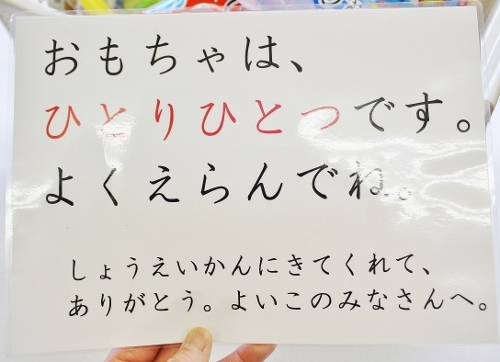 おもちゃは、
ひとりひとつです。
よくえらんでね。
しょうえいかんにきてくれて、
ありがとう。よいこのみなさんへ。